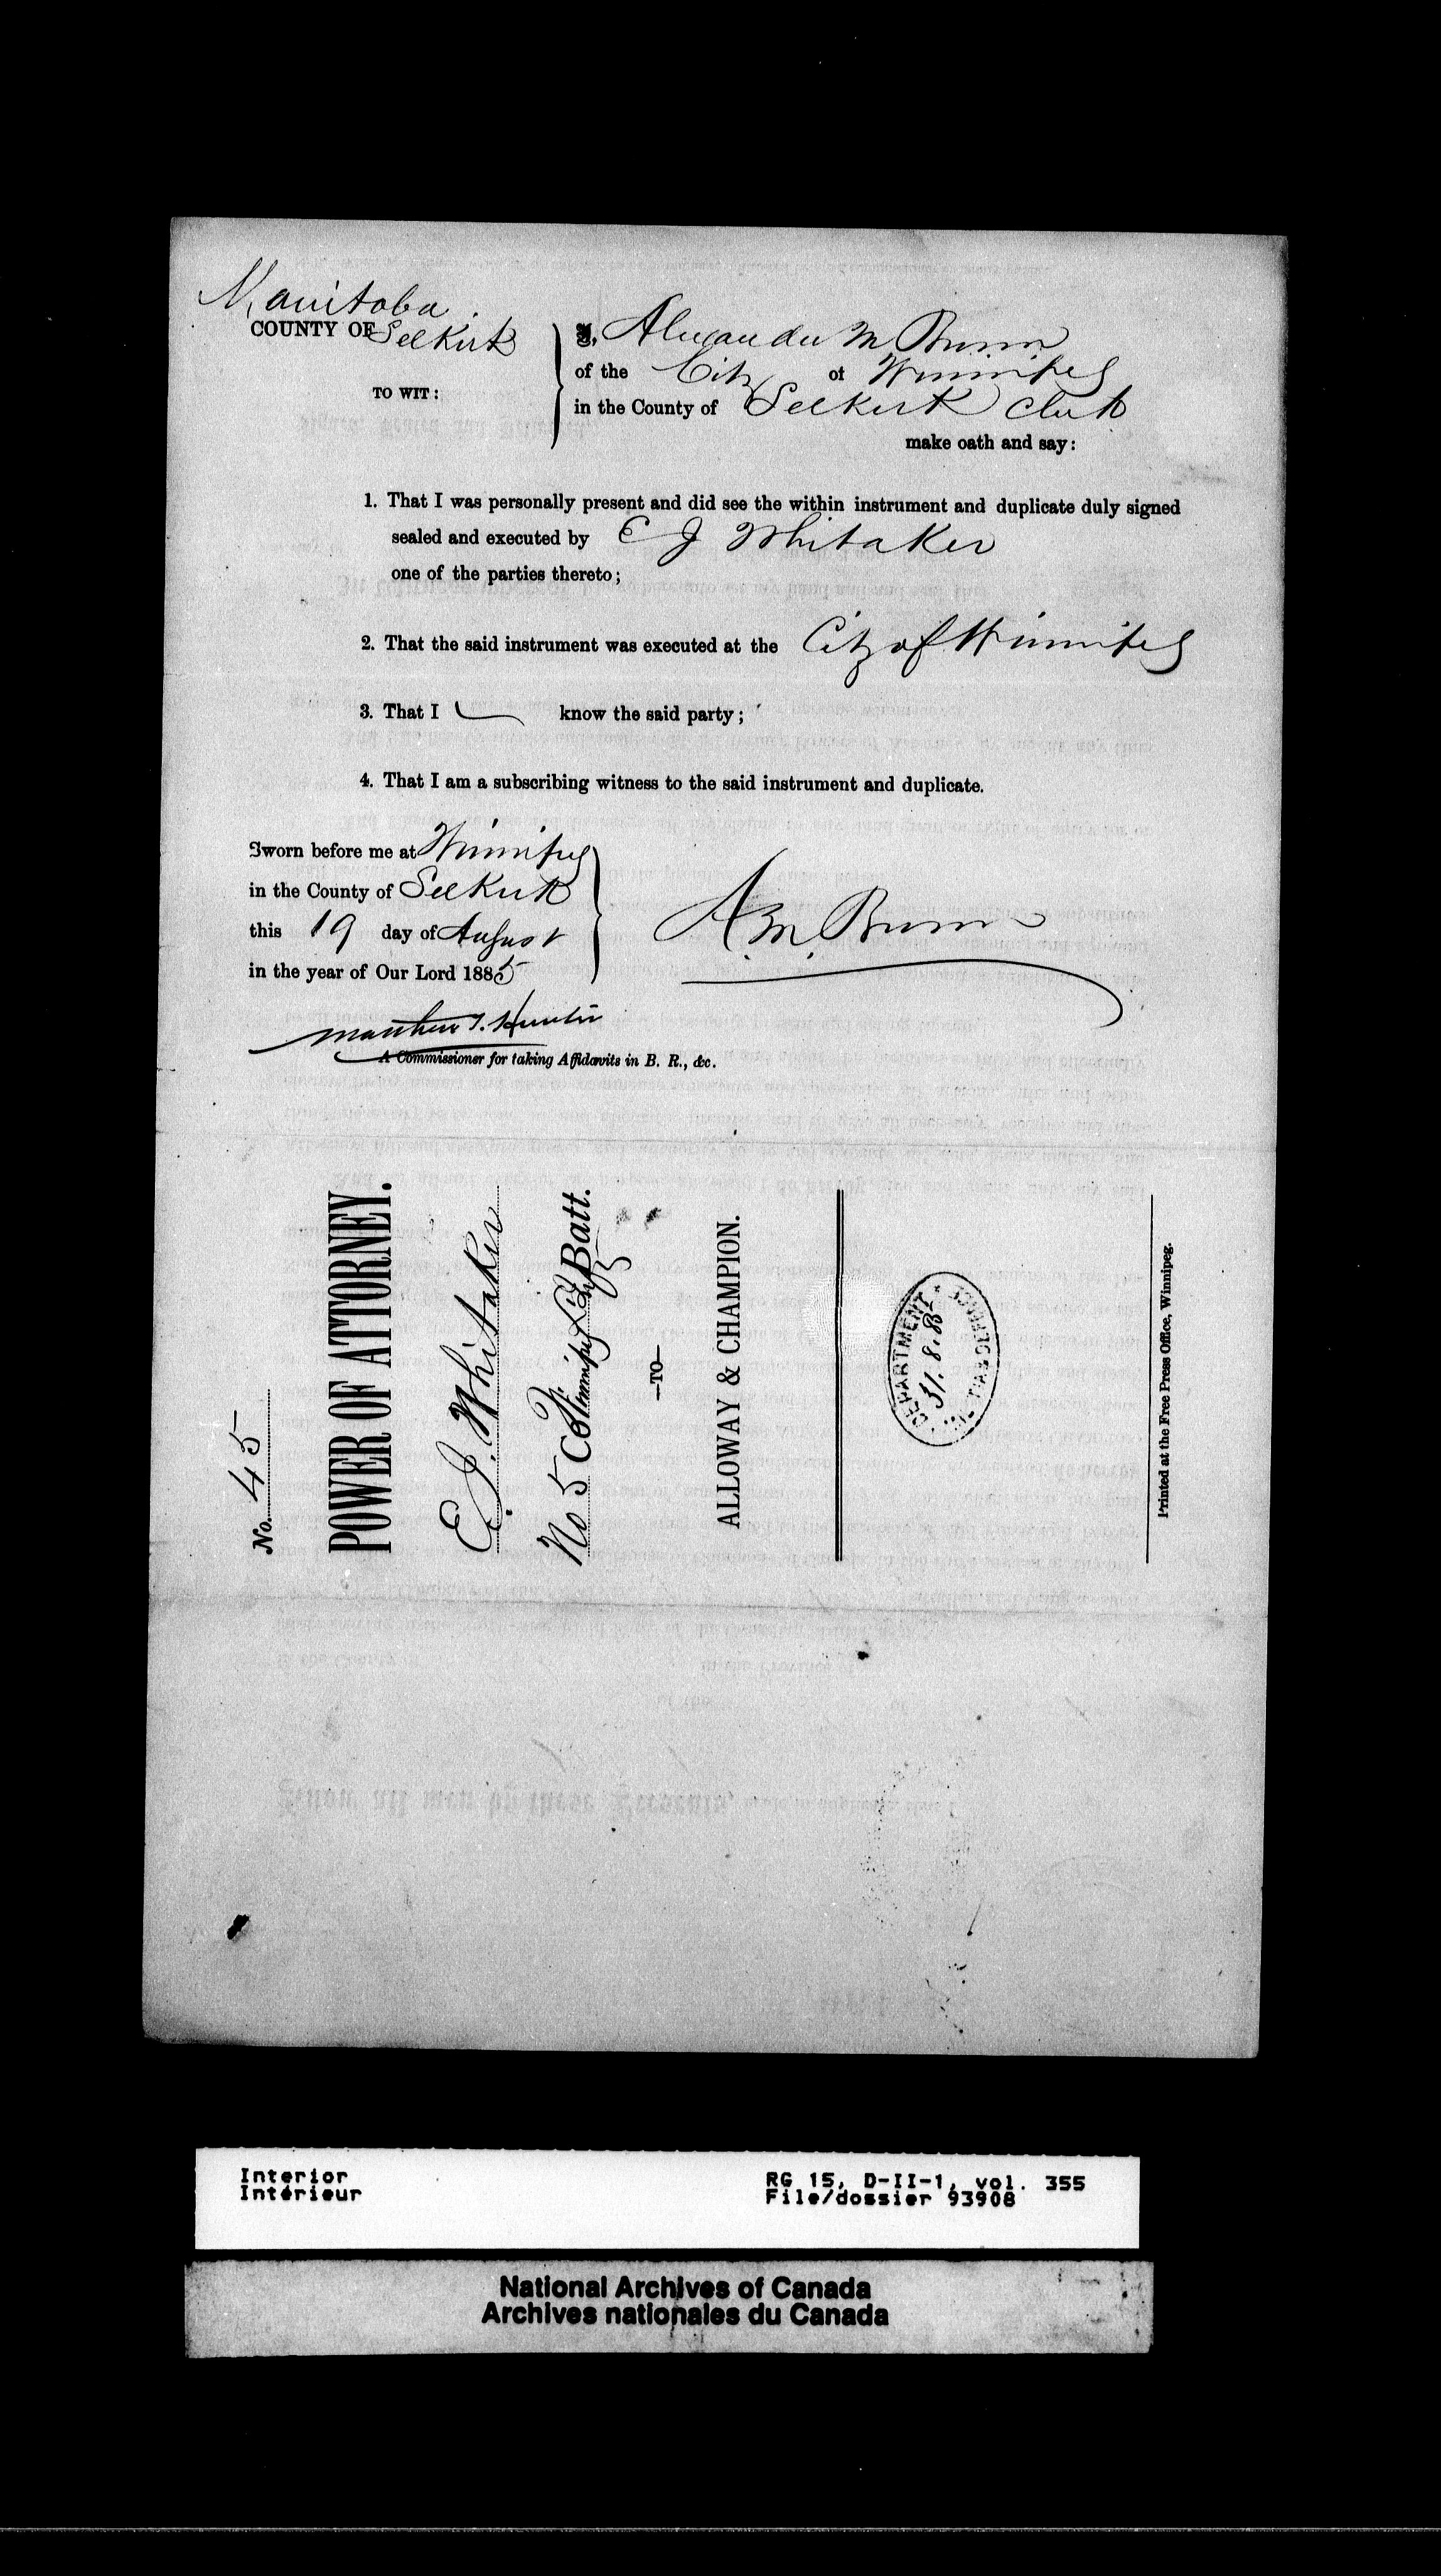 Manitoba
COUNTY OF Selkirk
TO WIT:
I, Alexander M Bunn
of the City of Winnipeg
in the County of Selkirk Clerk
make oath and say:
1. That I was personally present and did see the within instrument and duplicate duly signed
sealed and executed by E J Whitaker
one of the parties thereto;
2. That the said instrument was executed at the City of Winnipeg
3. That I know the said party;
4. That I am a subscribing witness to the said instrument and duplicate.
Sworn before me at Winnipeg
in the County of Selkirk
this 19 day of August
in the year of Our Lord 1885
A. M. Bunn
Matthew J. Hunter
A Commissioner for taking Affidavits in B. R., &c.
No. 45
POWER OF ATTORNEY.
E. J. Whitaker
No 5 Co Winnipeg Lt Infy Batt.
—TO—
ALLOWAY & CHAMPION.
DEPARTMENT
31.8.85
Printed at the Free Press Office, Winnipeg.
Interior
Intérieur
RG 15, D-II-1, vol. 355
File/dossier 93908
National Archives of Canada
Archives nationales du Canada